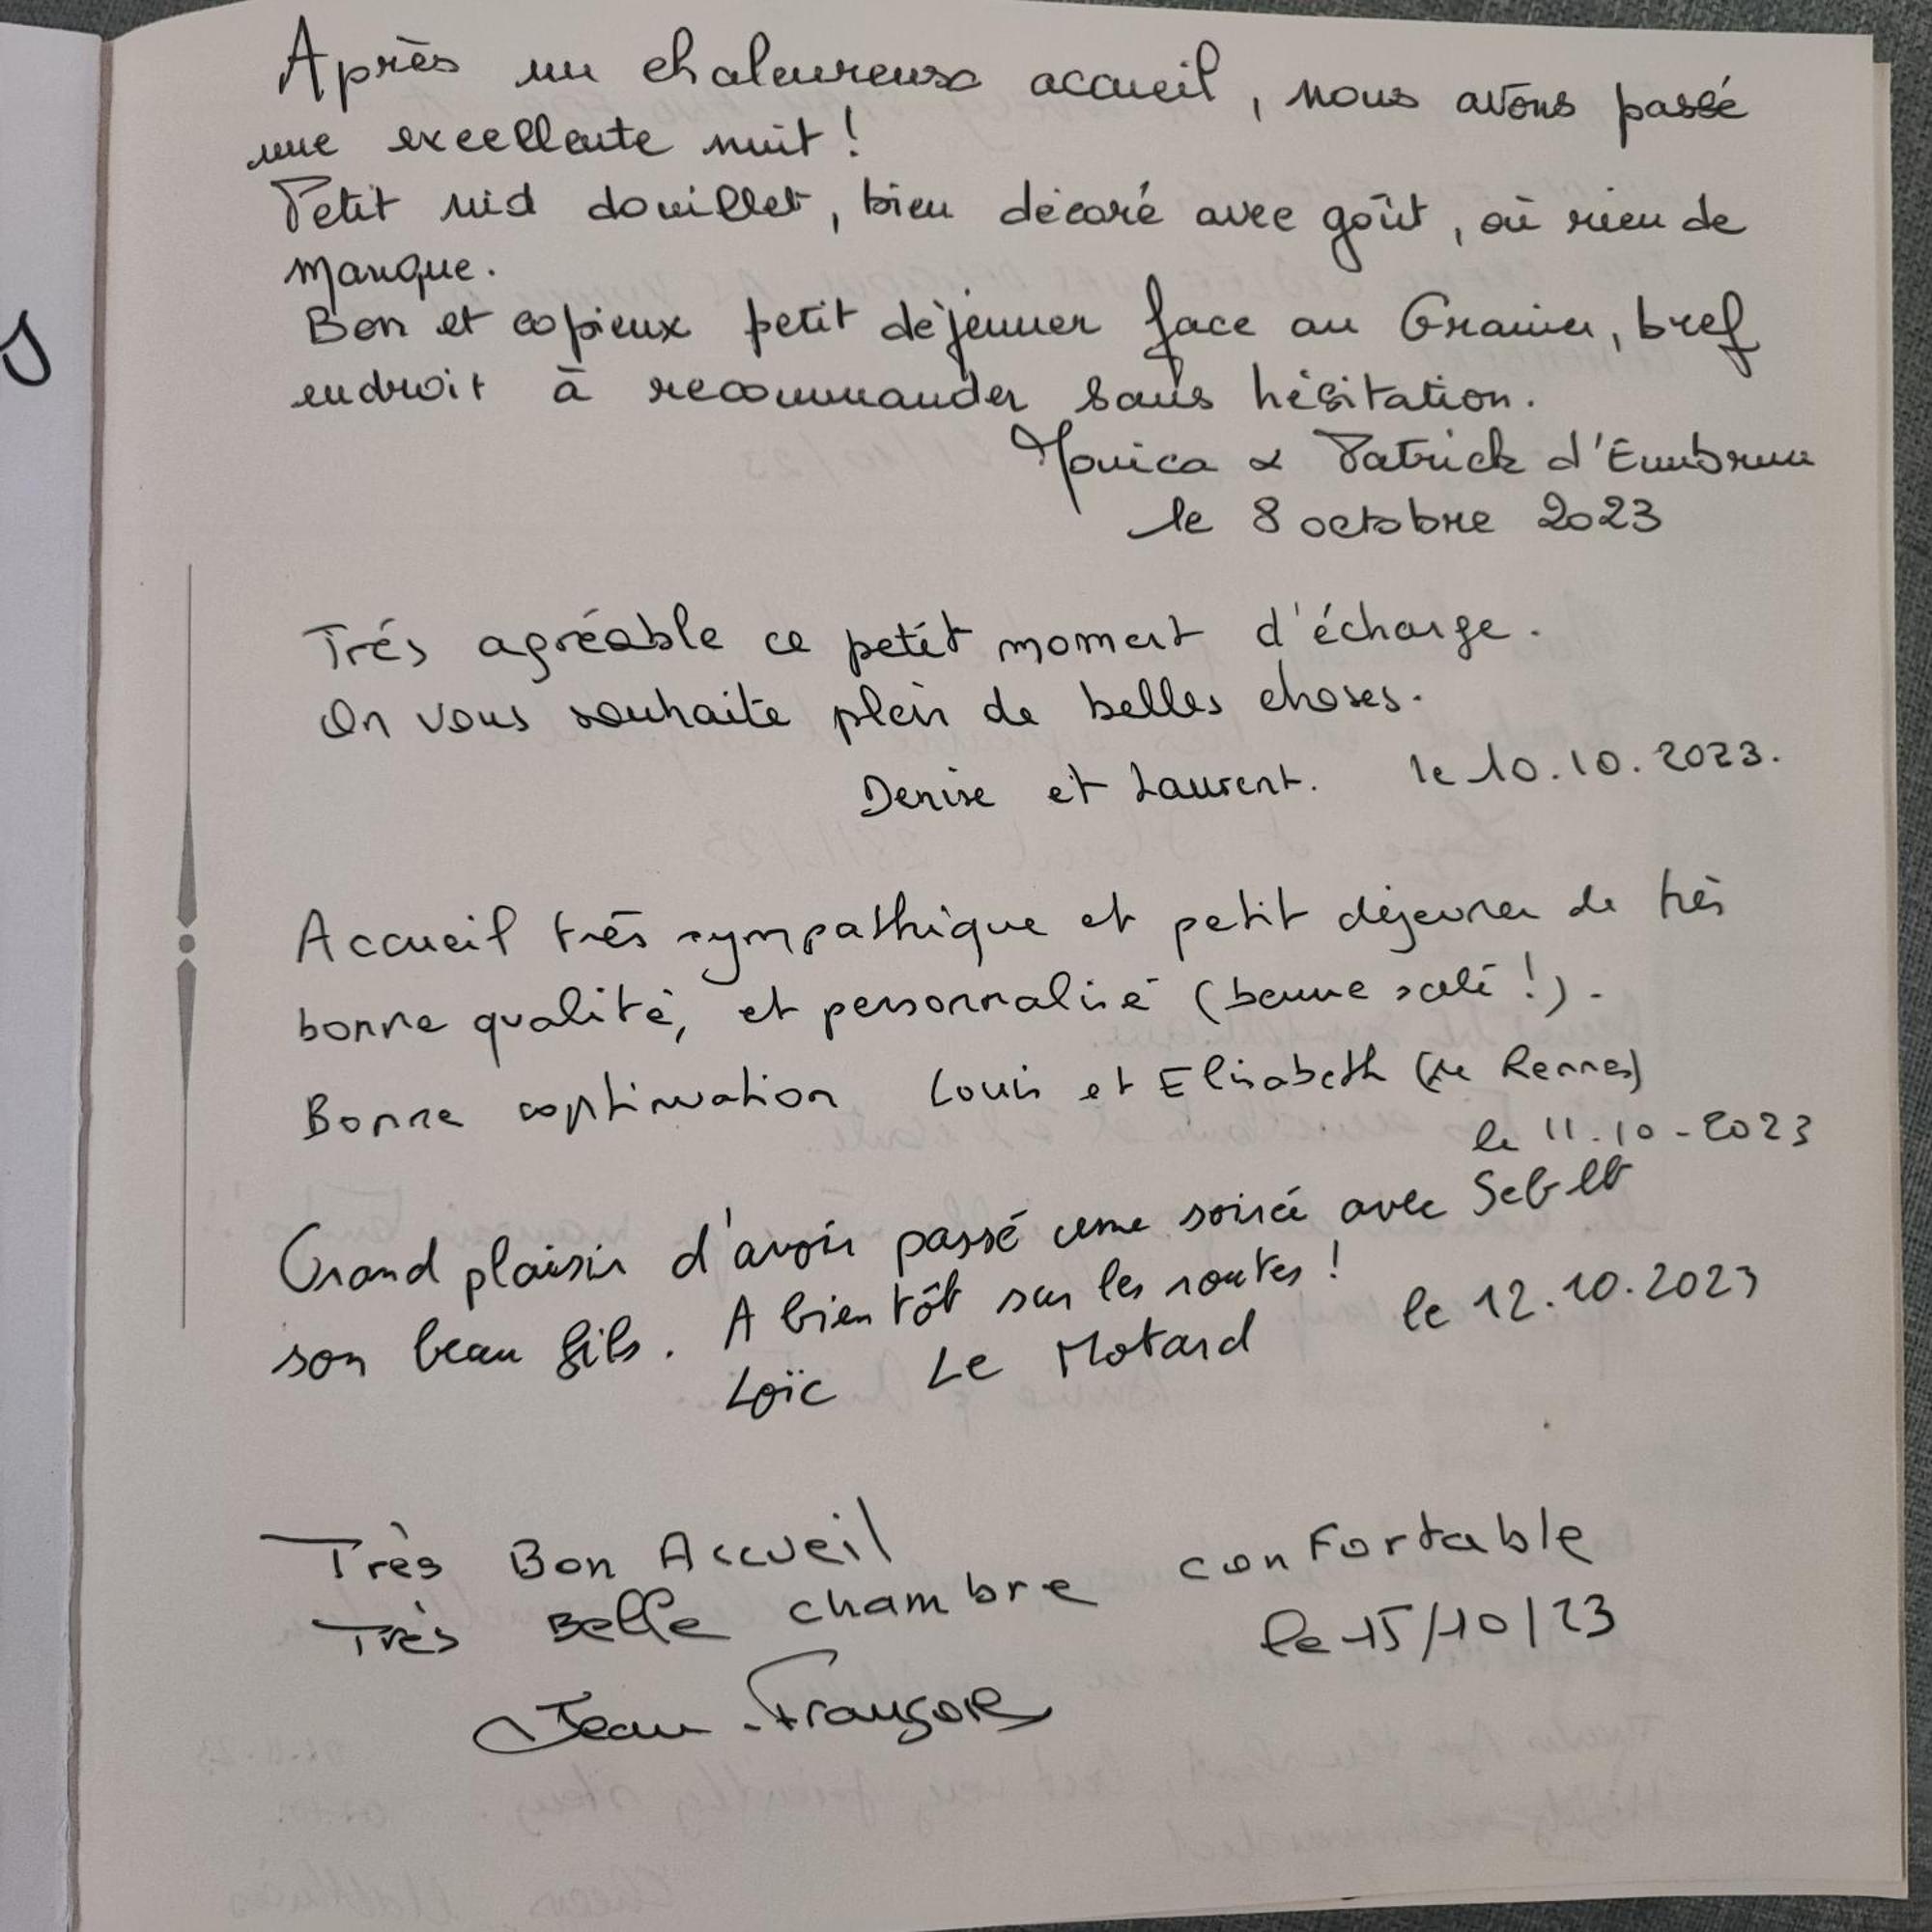 Après un chaleureux accueil, nous avons passé
une excellente nuit !
Petit nid douillet, bien décoré avec goût, où rien de
manque.
Bon et copieux petit déjeuner face au Granier, bref
endroit à recommander sans hésitation.
Monica & Patrick d'Embrun
le 8 octobre 2023
Trés agréable ce petit moment d'échange.
On vous souhaite plein de belles choses.
Denise et Laurent. le 10.10.2023.
Accueil très sympathique et petit déjeuner de très
bonne qualité, et personnalisé (beurre salé !).
Bonne continuation Louis et Elisabeth (de Rennes)
le 11.10-2023
Grand plaisir d'avoir passé une soirée avec Seb et
son beau fils. A bientôt sur les routes !
Loïc Le Motard le 12.10.2023
Très Bon Accueil
Très Belle chambre confortable
le 15/10/23
Jean-François